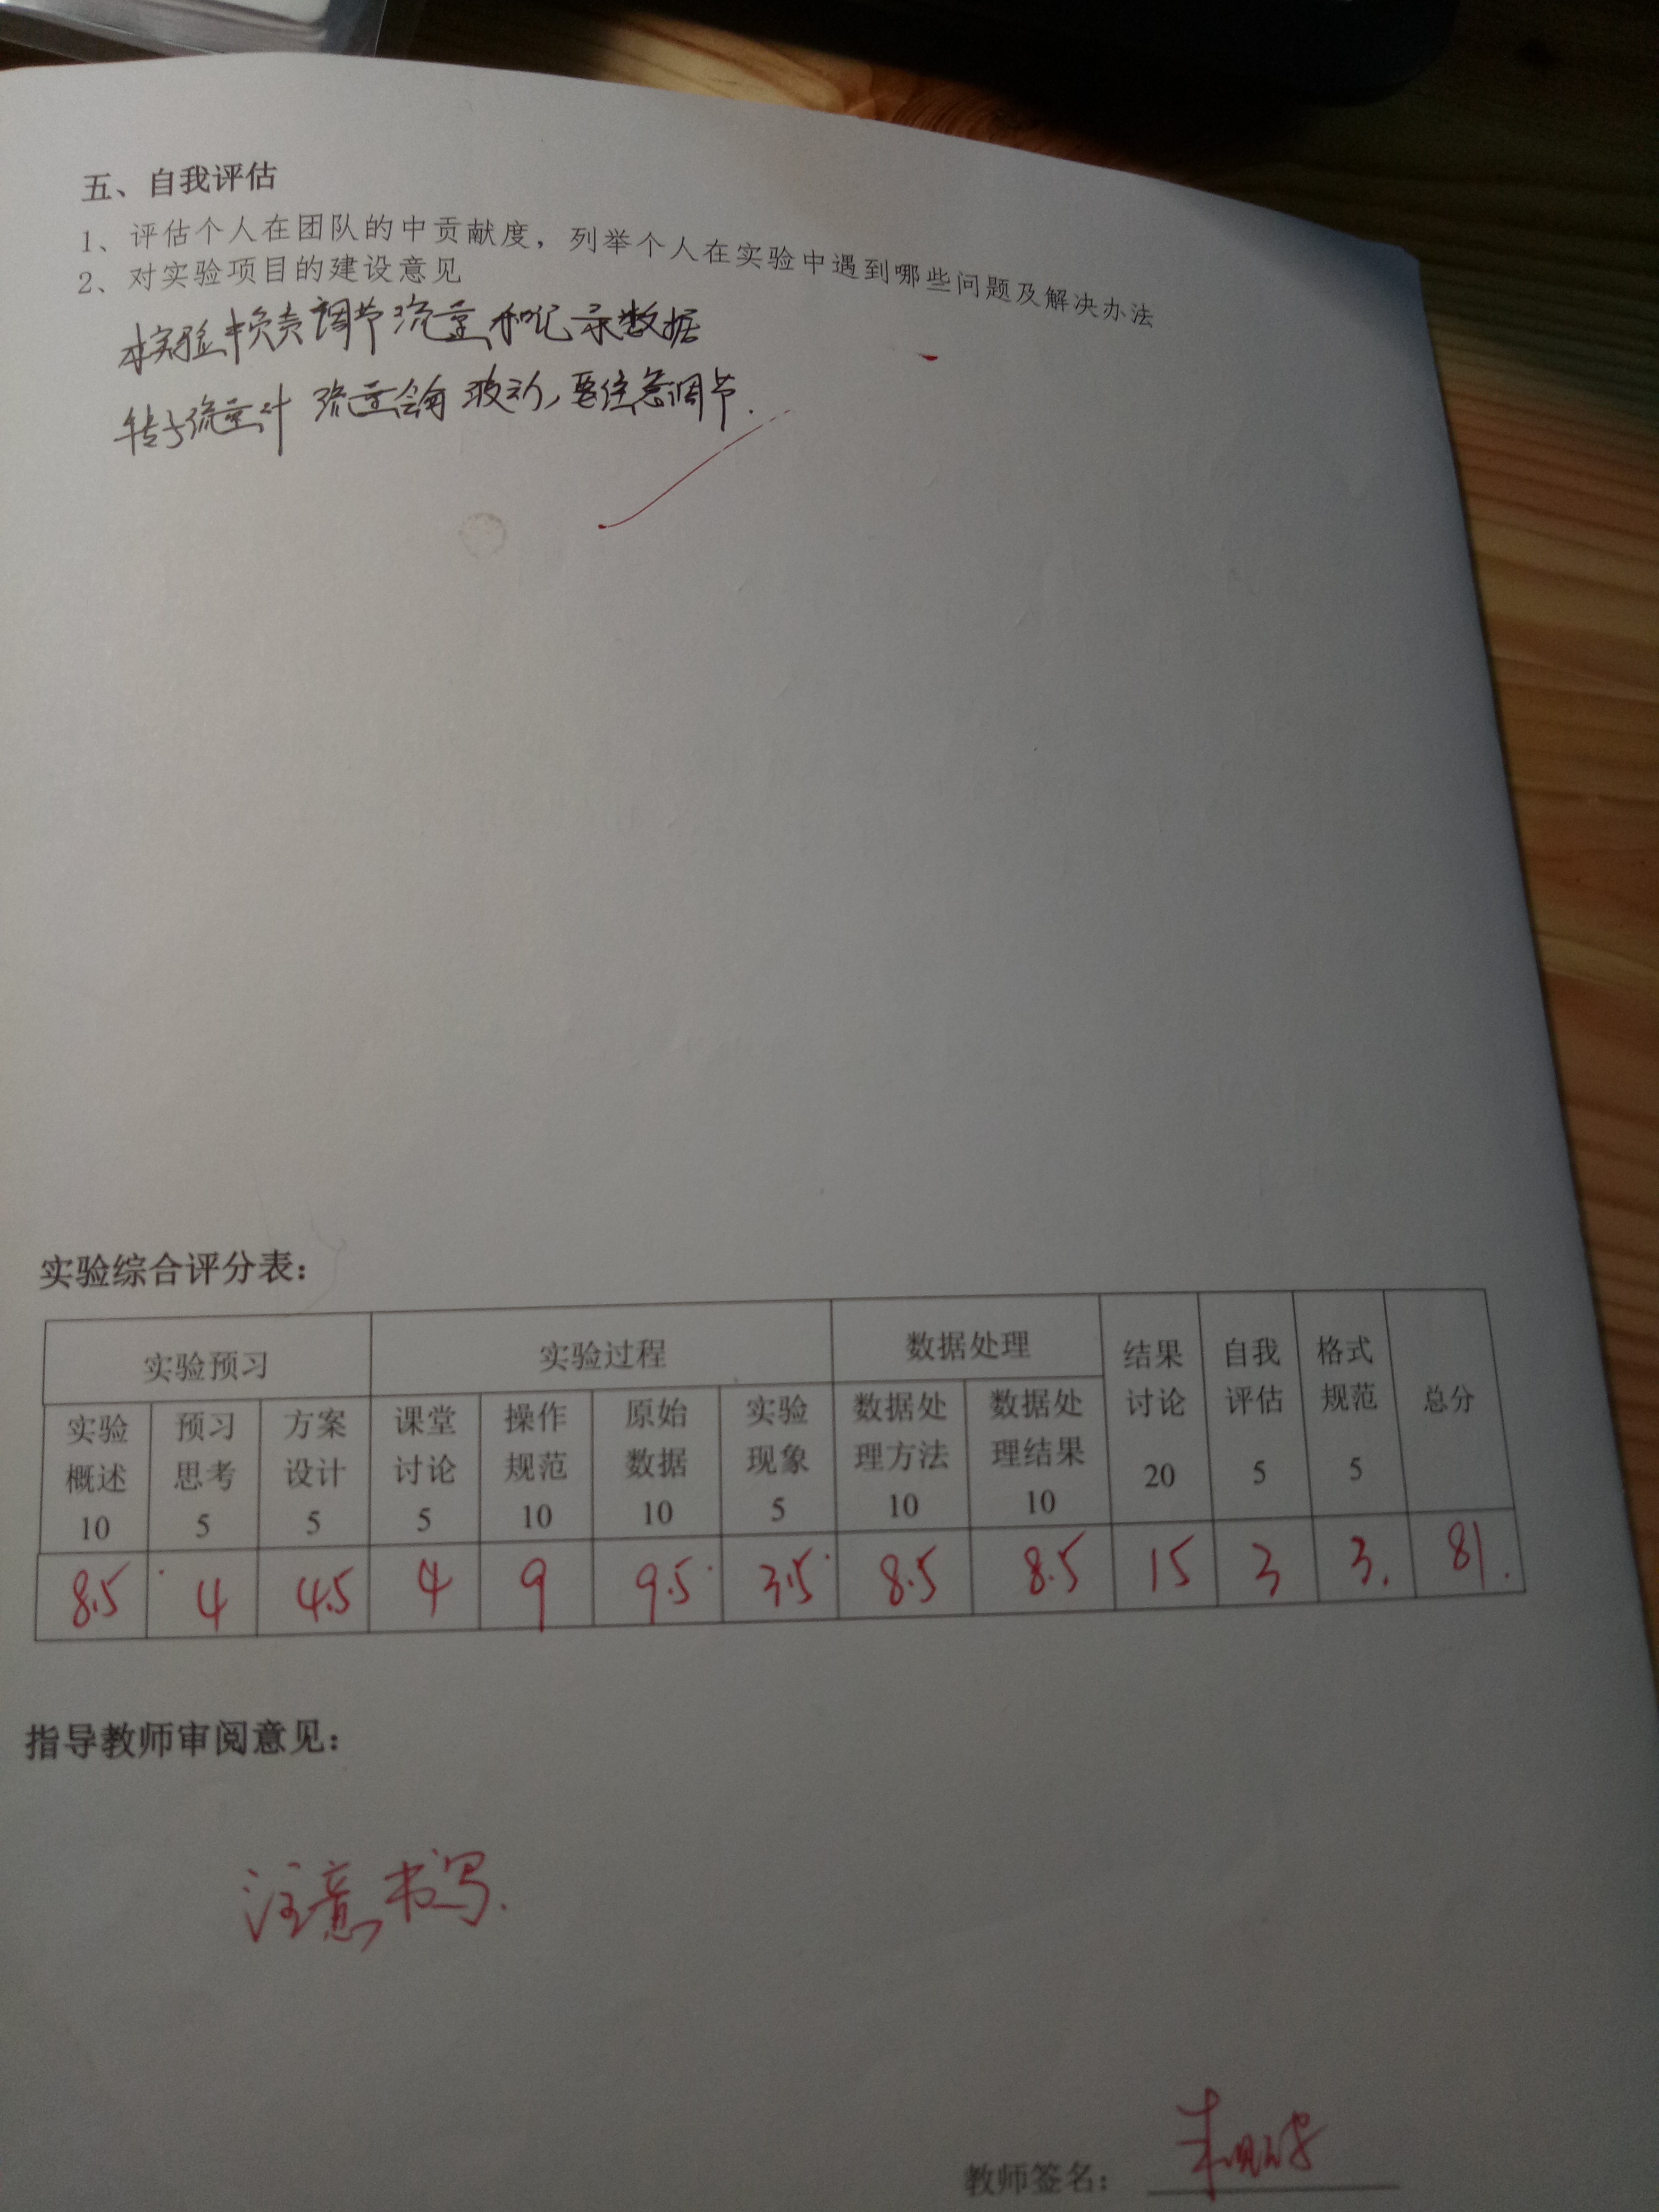 五、自我评估
1、评估个人在团队的中贡献度，列举个人在实验中遇到哪些问题及解决办法
2、对实验项目的建设意见
本实验中负责调节流量和记录数据
转子流量计 流量会有波动，要注意调节.
实验综合评分表：
实验预习 实验过程 数据处理 结果讨论 20 自我评估 5 格式规范 5 总分
实验概述 10 预习思考 5 方案设计 5 课堂讨论 5 操作规范 10 原始数据 10 实验现象 5 数据处理方法 10 数据处理结果 10
8.5 4 4.5 4 9 9.5 3.5 8.5 8.5 15 3 3. 81.
指导教师审阅意见：
注意书写.
教师签名：